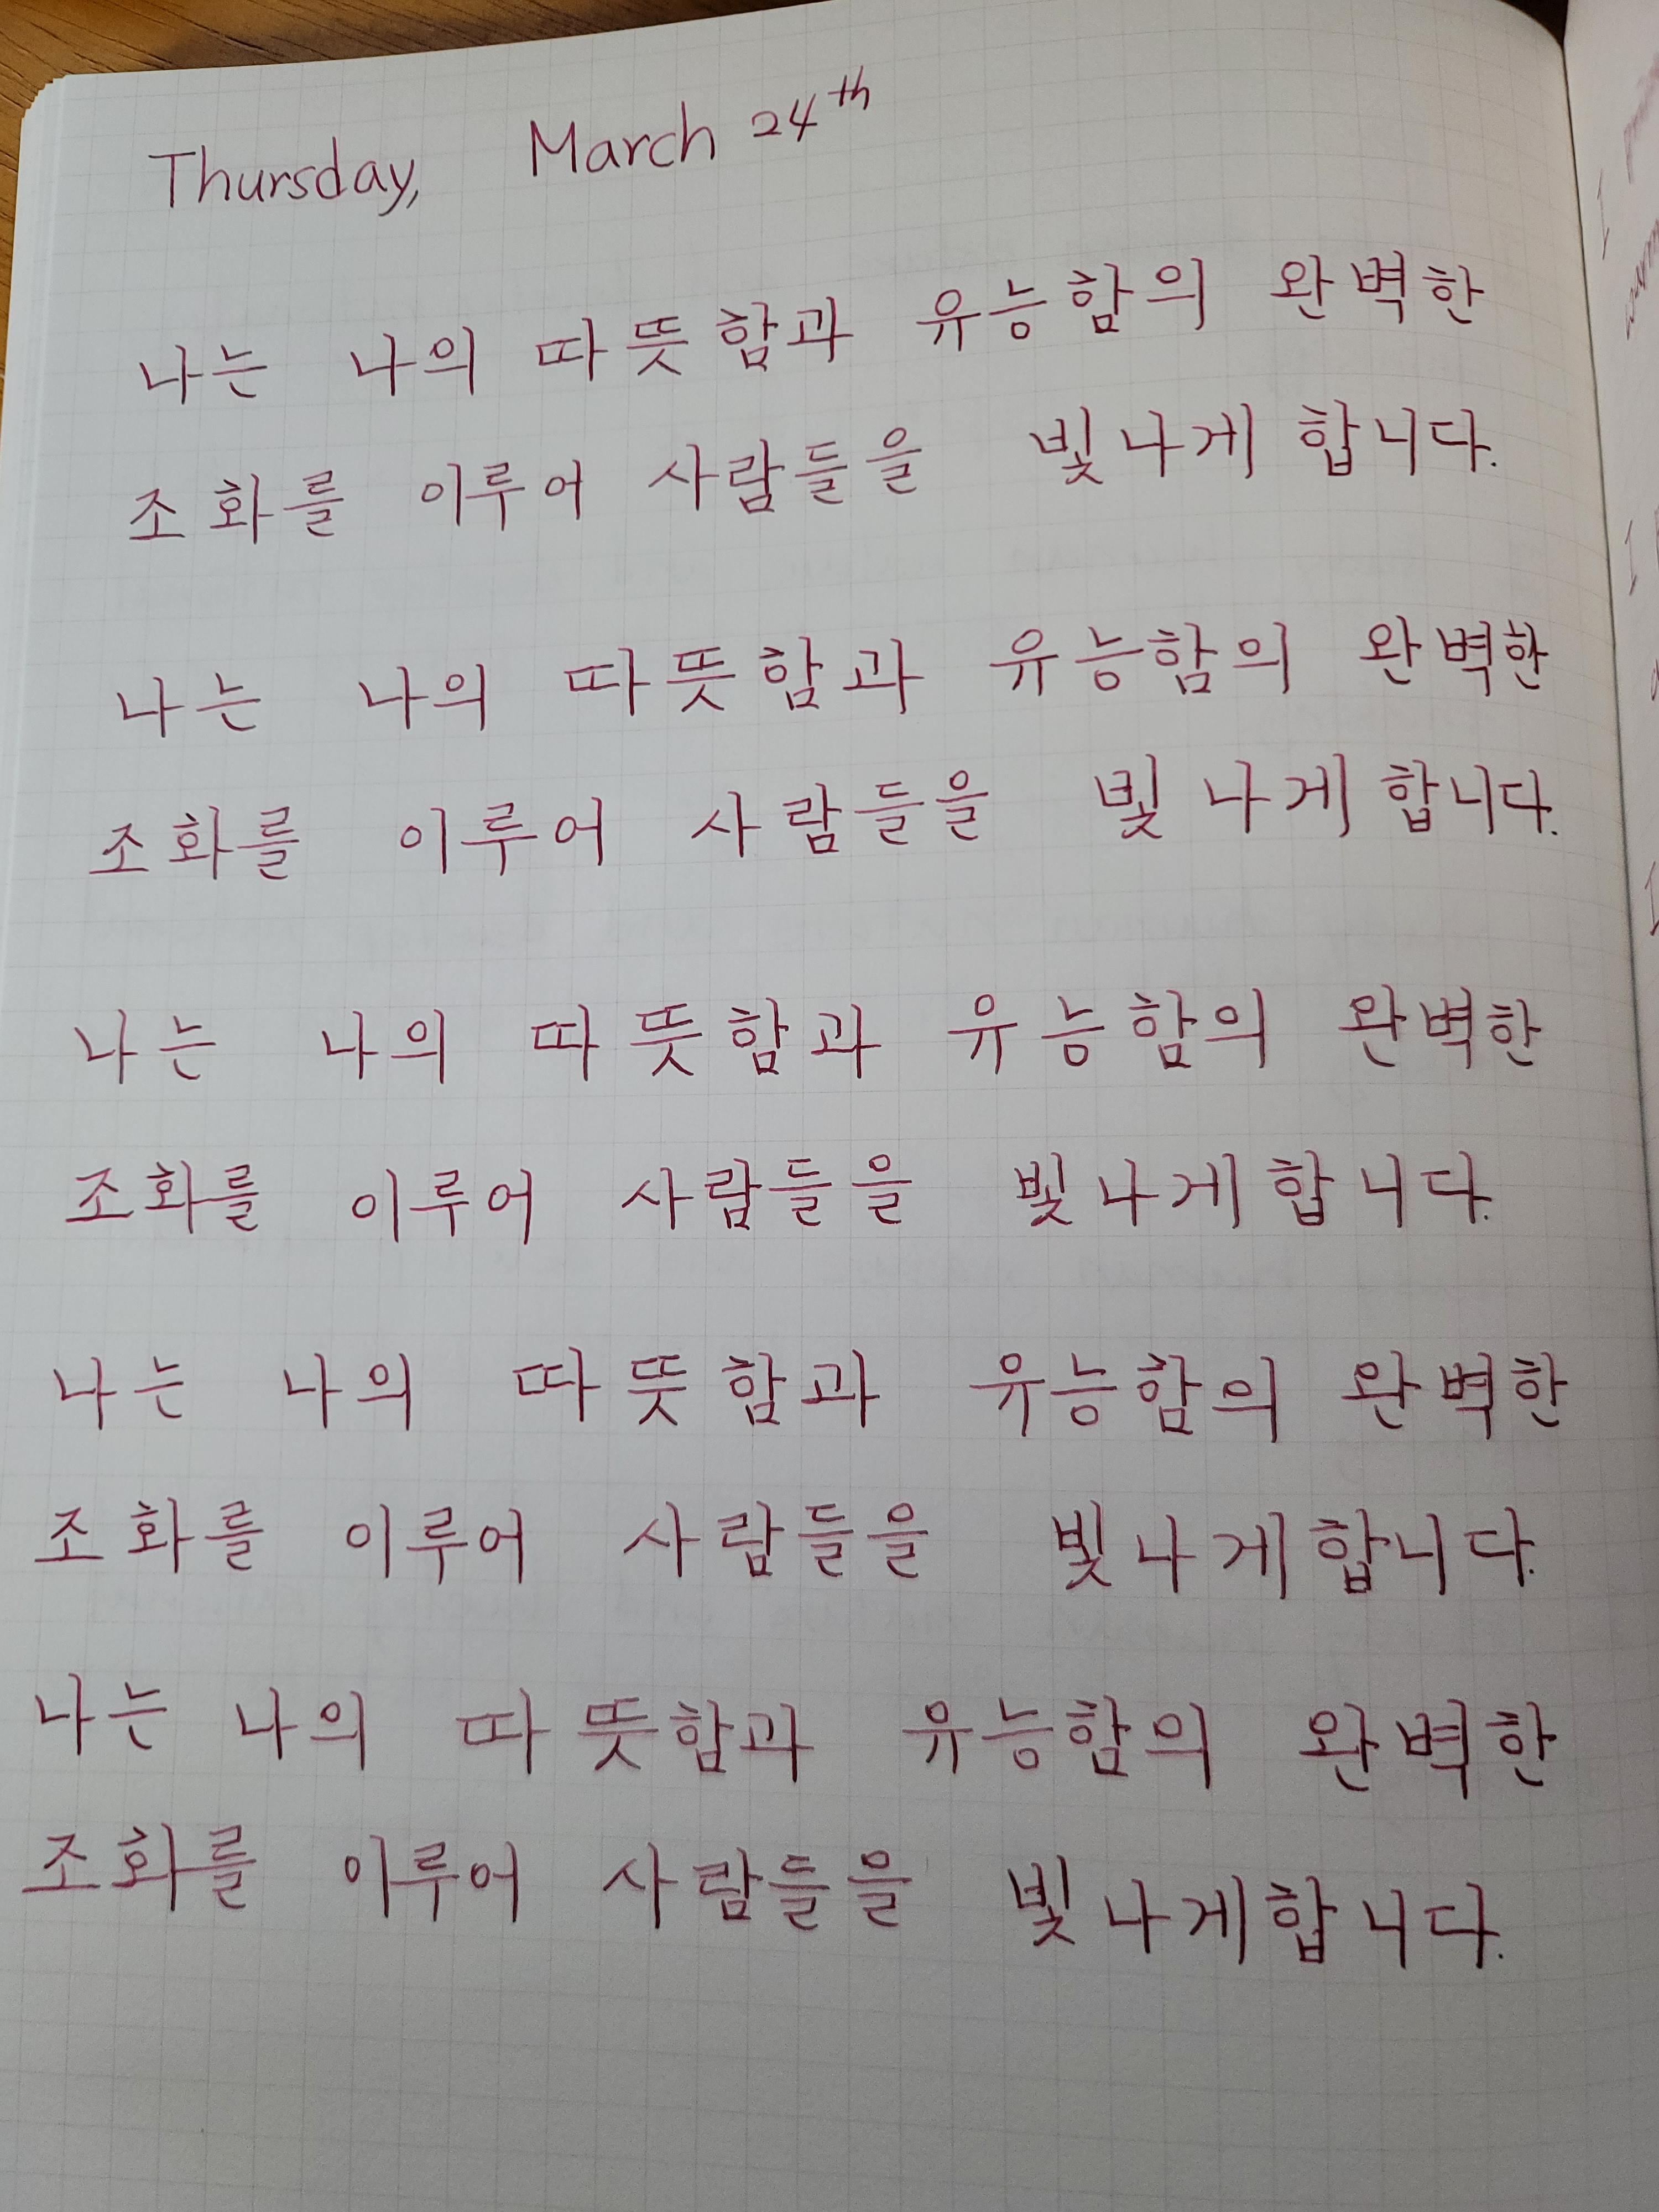 Thursday, March 24th
나는 나의 따뜻함과 유능함의 완벽한
조화를 이루어 사람들을 빛나게 합니다.
나는 나의 따뜻함과 유능함의 완벽한
조화를 이루어 사람들을 빛나게 합니다.
나는 나의 따뜻함과 유능함의 완벽한
조화를 이루어 사람들을 빛나게 합니다.
나는 나의 따뜻함과 유능함의 완벽한
조화를 이루어 사람들을 빛나게 합니다.
나는 나의 따뜻함과 유능함의 완벽한
조화를 이루어 사람들을 빛나게 합니다.